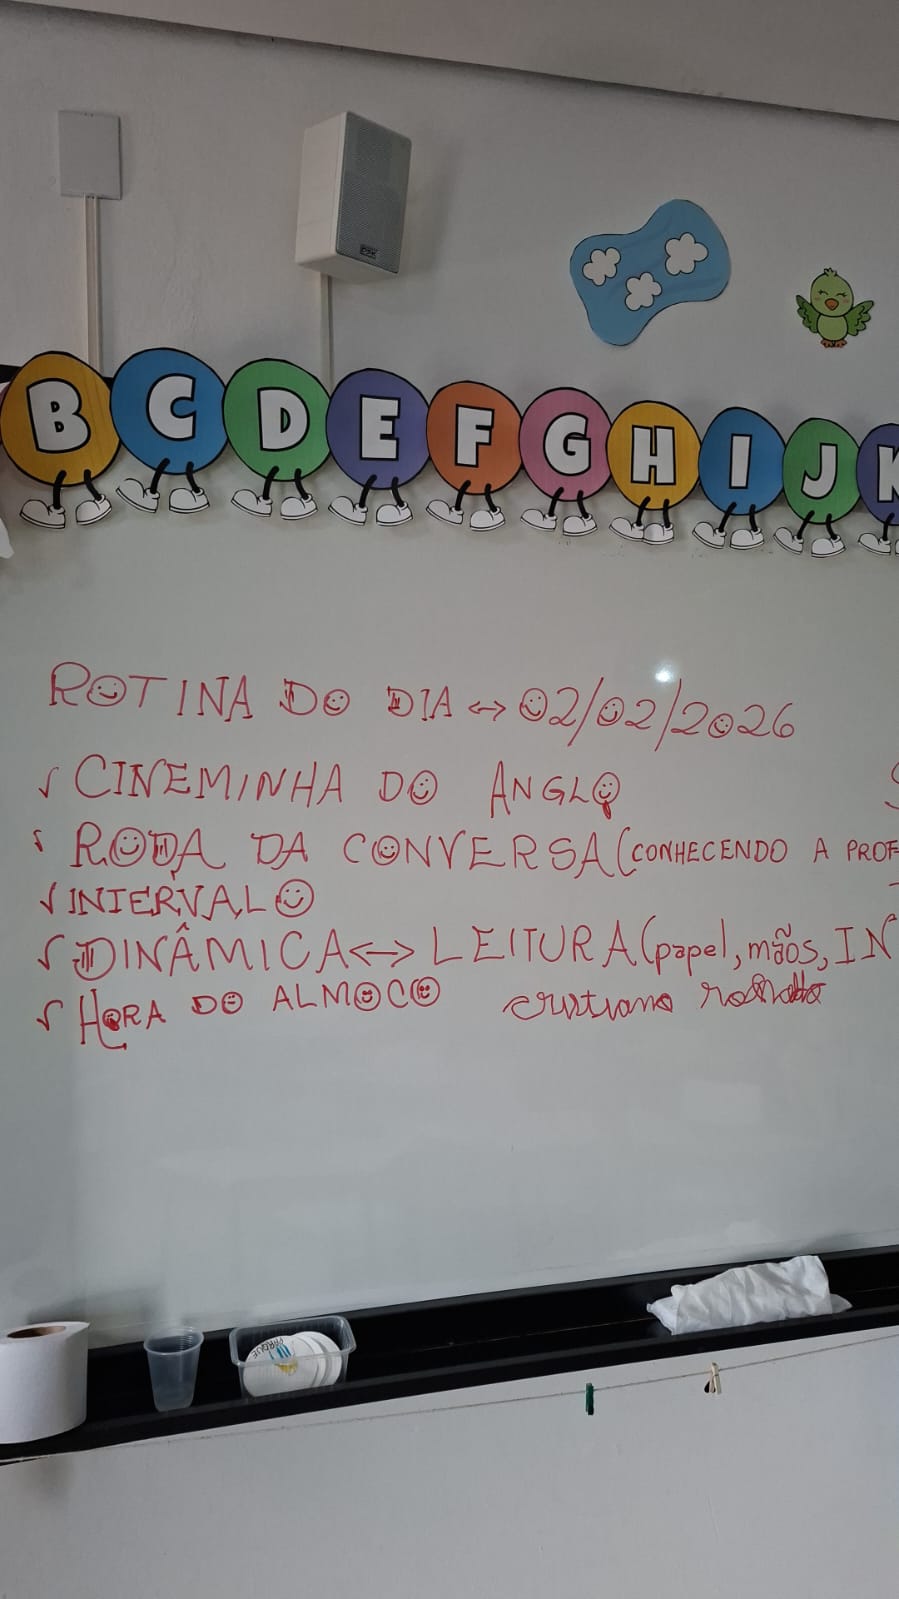 B C D E F G H I J K
ROTINA DO DIA ↔ 02/02/2026
✓ CINEMINHA DO ANGLO
✓ RODA DA CONVERSA (CONHECENDO A PROF
✓ INTERVALO
✓ DINÂMICA ↔ LEITURA (papel, mãos, IN
✓ HORA DO ALMOCO
cristiano
PARQUE